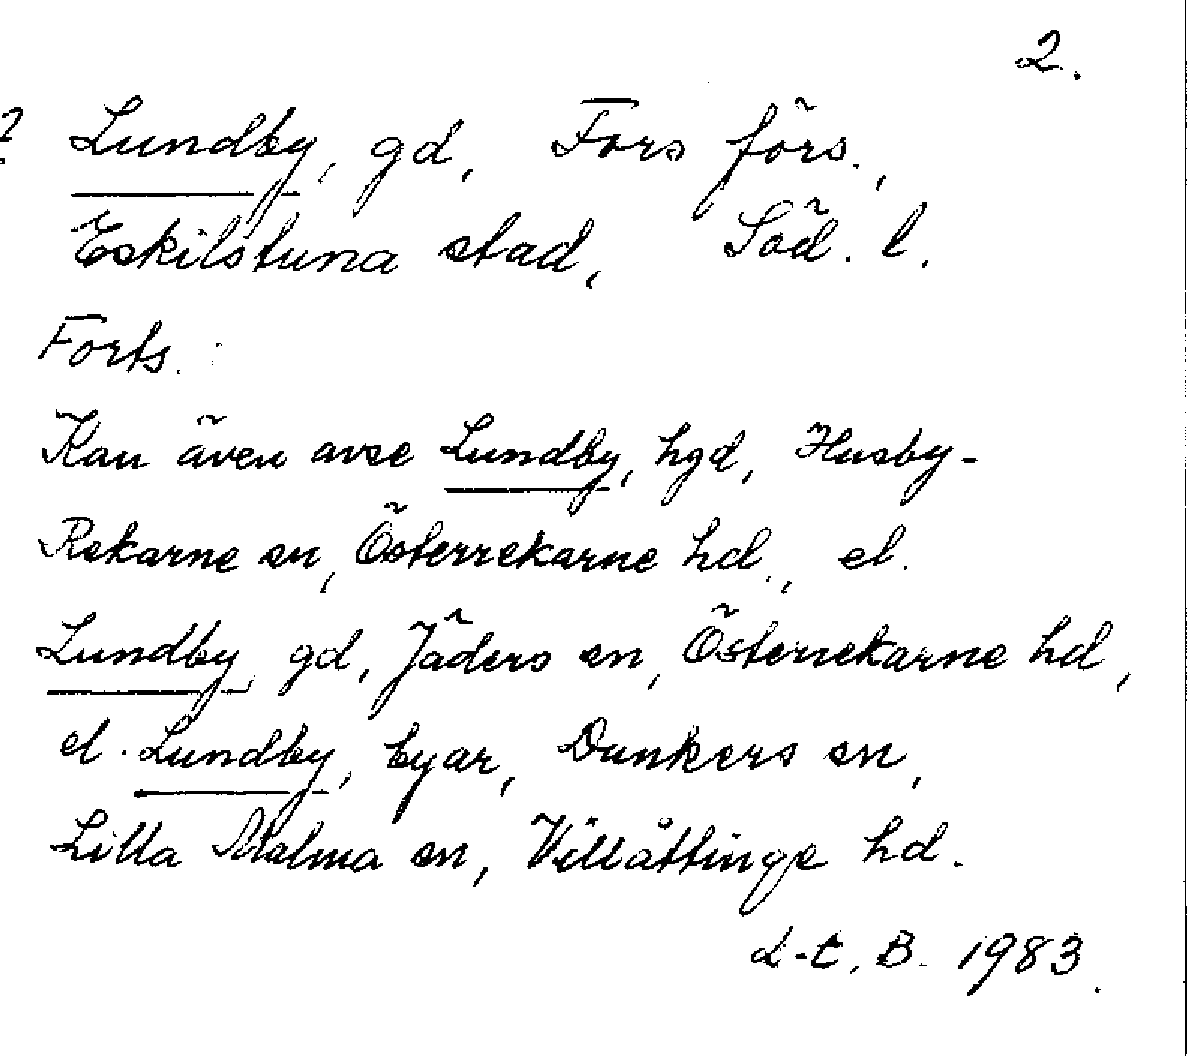 2.
? Lundby, gd, Fors förs.,
Eskilstuna stad, Söd. l.
Forts. :
Kan även avse Lundby, hgd, Husby-
Rekarne sn, Österrekarne hd., el.
Lundby, gd, Jäders sn, Österrekarne hd,
el. Lundby, byar, Dunkers sn,
Lilla Malma sn, Villåttinge hd.
L-t. B. 1983.